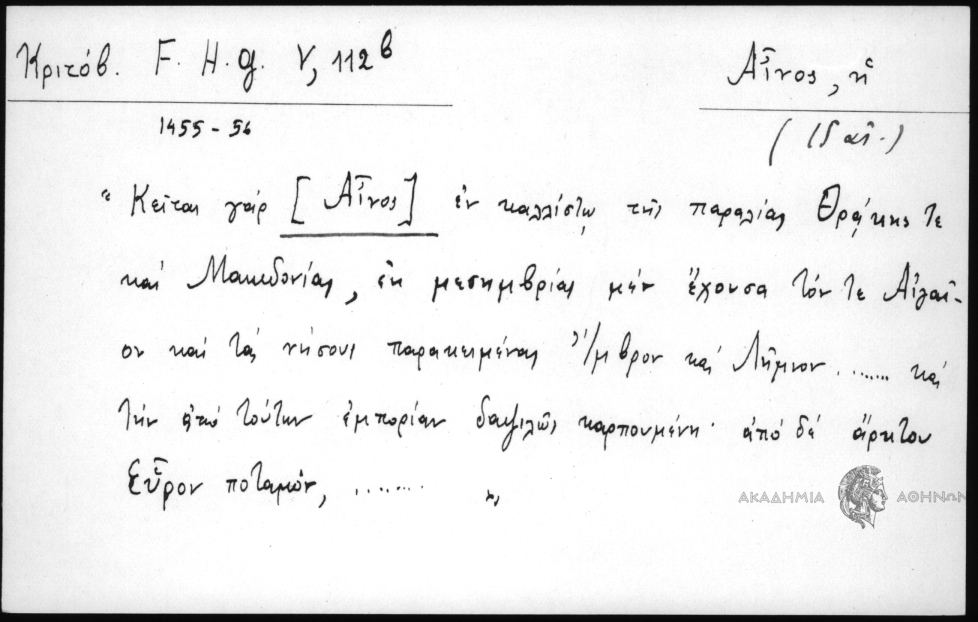 Κριτόβ. F. H. G. V, 112β
Αἶνος, ἡ
1455 - 56
"Κεῖται γάρ [Αἶνος] ἐν καλλίστῳ τῆς παραλίας Θρᾴκης τε
καί Μακεδονίας, ἐκ μεσημβρίας μέν ἔχουσα τόν τε Αἰγαῖ-
ον καί τάς νήσους παρακειμένας Ἴμβρον καί Λῆμνον ........ καί
τήν ἀπό τούτων ἐμπορίαν δαψιλῶς καρπουμένη· ἀπό δέ ἄρκτου
Εὖρον ποταμόν, ........ "
ΑΚΑΔΗΜΙΑ ΑΘΗΝΩΝ